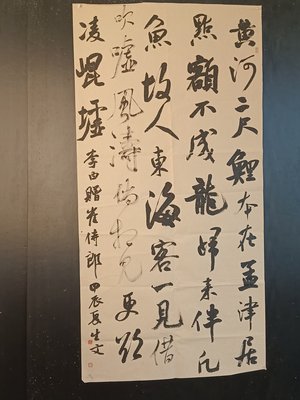 黄河二尺鯉本在孟津居
點額不成龍歸来伴凡
魚故人東海客一見借
吹嘘風濤倘相見更欲
凌崐墟 李白贈崔侍郎 甲辰長生文